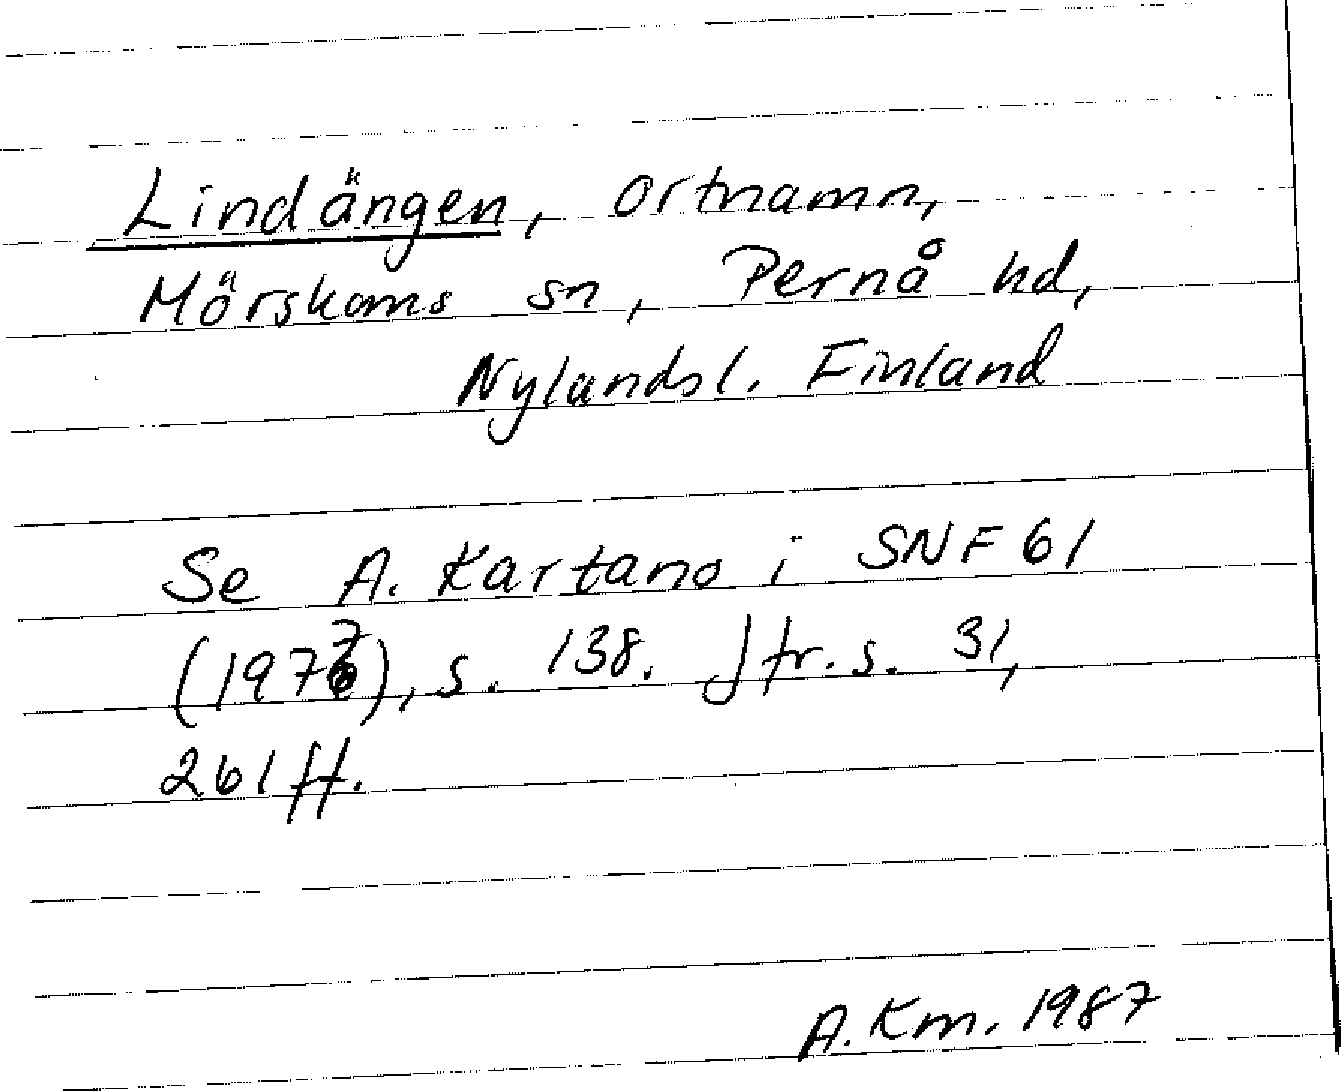 Lindängen, ortnamn,
Mörskoms sn, Pernå hd,
Nylandsl. Finland
Se A. Kartano i SNF 61
(1977), s. 138. Jfr. s. 31,
261 ff.
A. Km. 1987